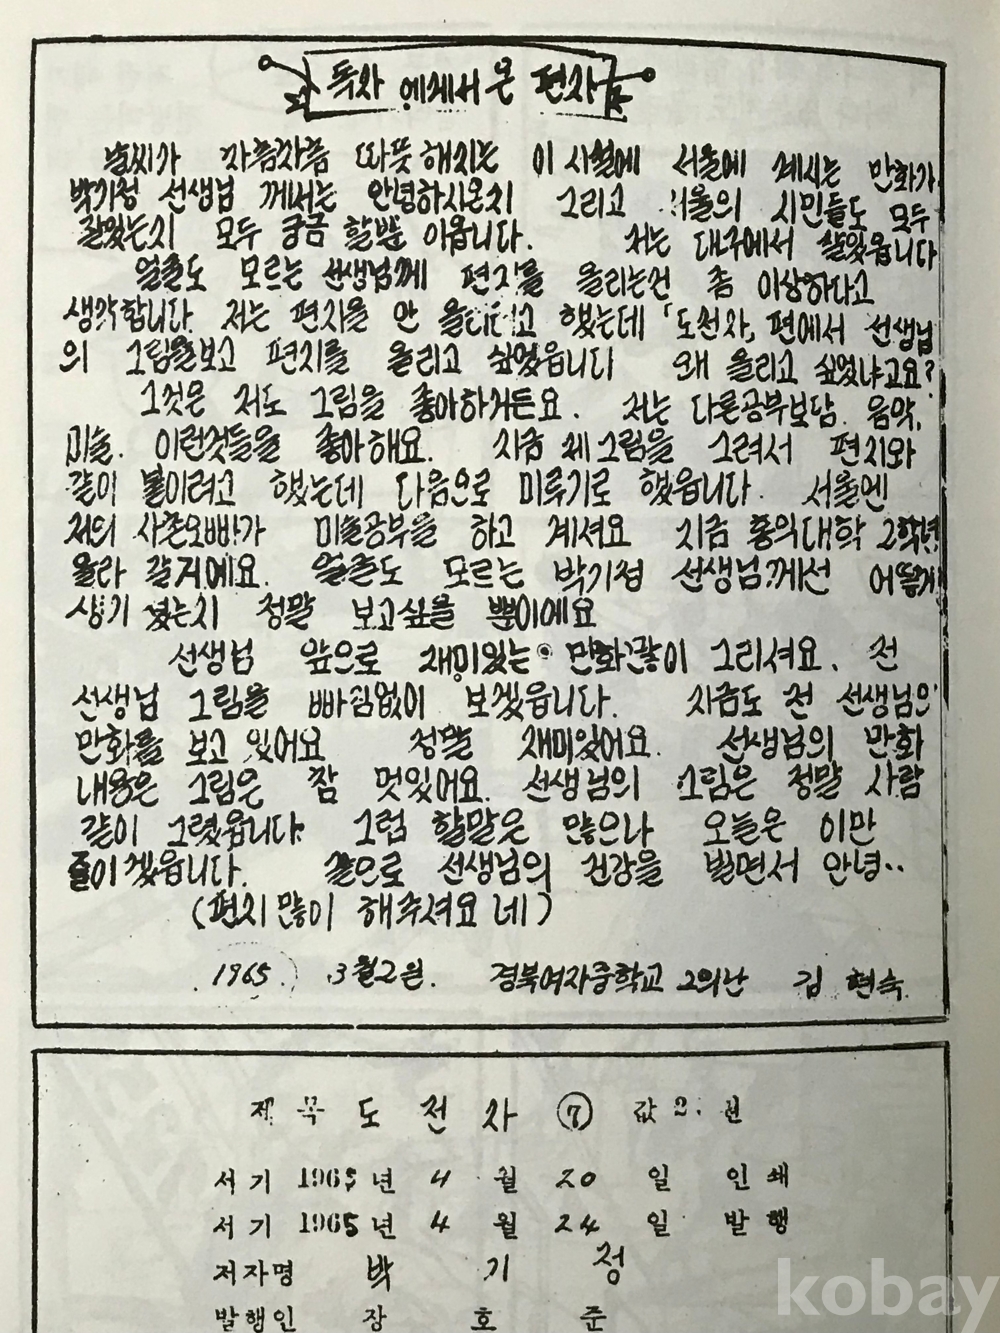 독자 에게서 온 편지
날씨가 차츰차츰 따뜻해지는 이 시절에 서울에 계시는 만화가
박기정 선생님 께서는 안녕하시온지 그리고 서울의 시민들도 모두
잘있는지 모두 궁금 할뿐 이옵니다. 저는 대구에서 살았읍니다
얼굴도 모르는 선생님께 편지를 올리는건 좀 이상하다고
생각합니다. 저는 편지를 안 올리려고 했는데 「도전자」편에서 선생님
의 그림을보고 편지를 올리고 싶었읍니다 왜 올리고 싶었냐고요?
그것은 저도 그림을 좋아하거든요. 저는 다른공부보담. 음악,
미술. 이런것들을 좋아해요. 지금 제 그림을 그려서 편지와
같이 붙이려고 했는데 다음으로 미루기로 했읍니다. 서울엔
저의 사촌오빠가 미술공부를 하고 계셔요 지금 홍익대학 2학년
올라 갈거예요. 얼굴도 모르는 박기정 선생님께선 어떻게
생기셨는지 정말 보고싶을 뿐이에요
선생님 앞으로 재미있는 만화많이 그리셔요. 전
선생님 그림을 빠짐없이 보겠읍니다. 지금도 전 선생님의
만화를 보고 있어요 정말 재미있어요. 선생님의 만화
내용은 그림은 참 멋있어요. 선생님의 그림은 정말 사람
같이 그렸읍니다. 그럼 할말은 많으나 오늘은 이만
줄이겠읍니다. 끝으로 선생님의 건강을 빌면서 안녕..
(편지많이 해주셔요 네)
1965 3월2일. 경북여자중학교 2의난 김 현숙
제 목 도 전 자 ⑦ 값 2. 원
서기 1965년 4 월 20 일 인쇄
서기 1965년 4 월 24 일 발행
저자명 박 기 정
발행인 장 호 준
kobay